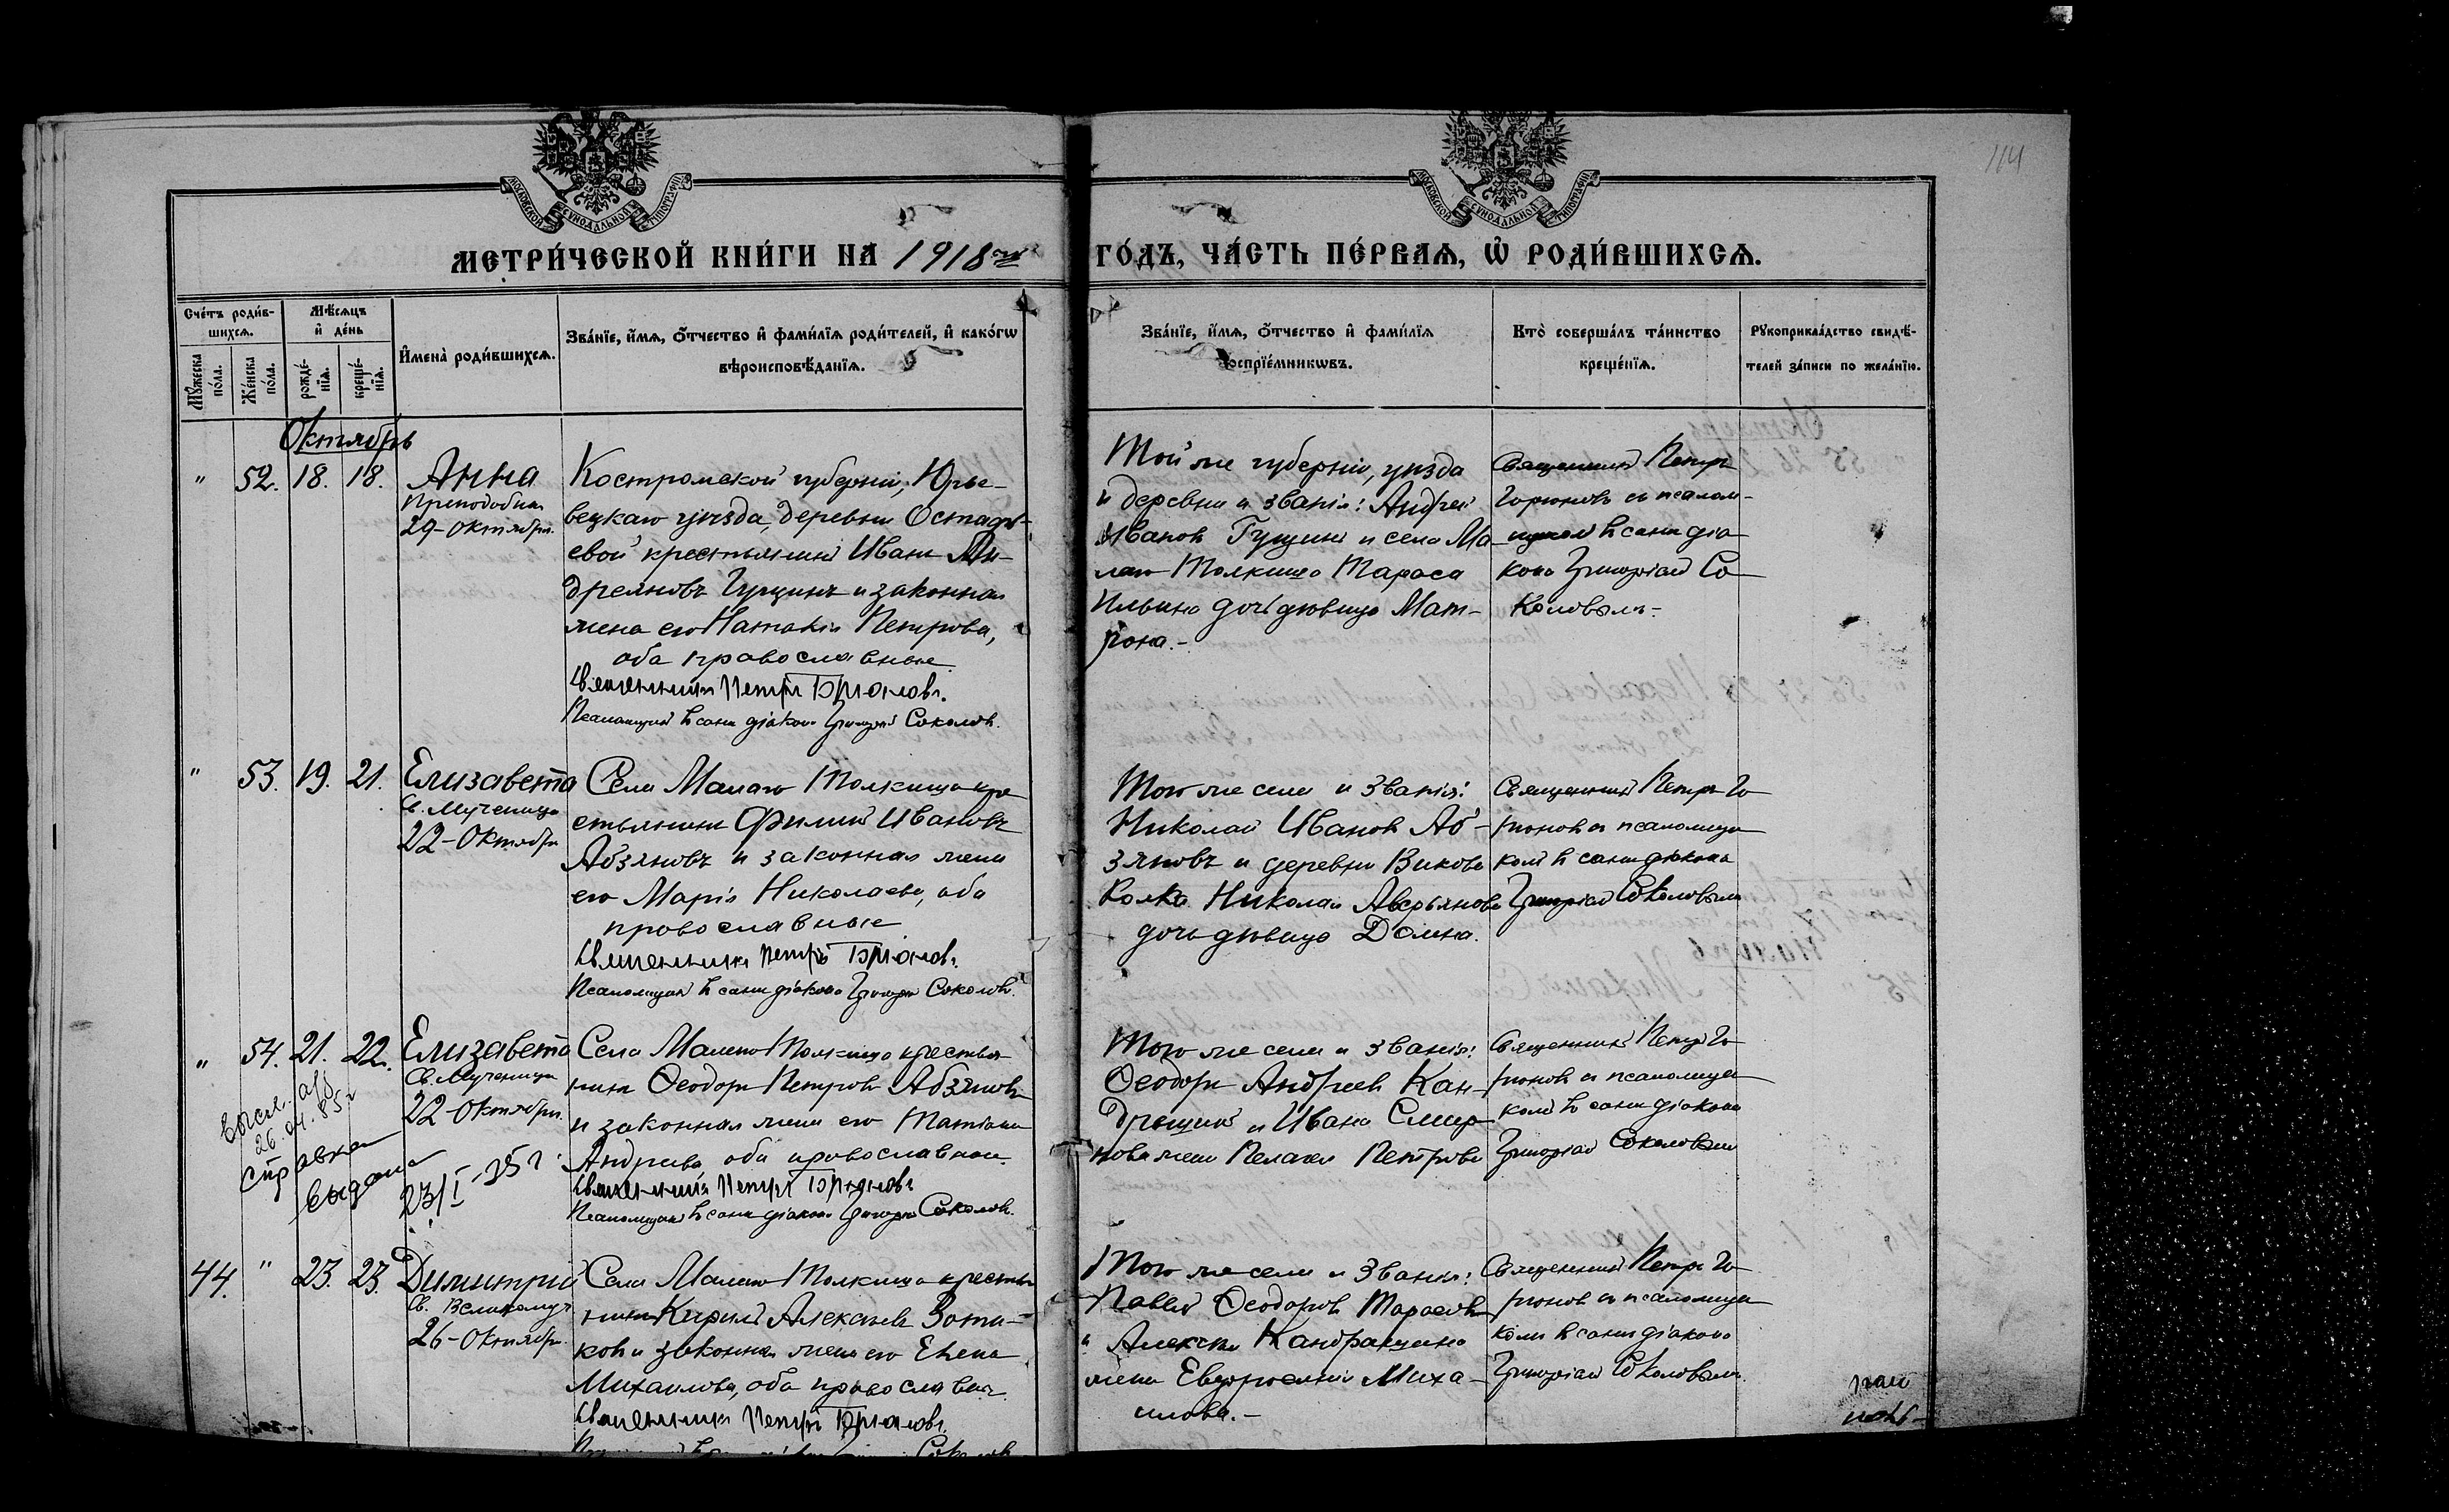 114
МОСКОВСКОЙ СѴНОДАЛЬНОЙ ТИПОГРАФІИ
МОСКОВСКОЙ СѴНОДАЛЬНОЙ ТИПОГРАФІИ
МЕТРИ́ЧЕСКОЙ КНИ́ГИ НА 1918 ГО́ДЪ, ЧА́СТЬ ПЕ́РВАѦ, Ѡ҆ РОДИ́ВШИХСѦ.
Сче́тъ роди́в-
шихсѧ.
Мѣ́сѧцъ
и҆ де́нь
Мꙋ́жеска по́ла.
Же́нска по́ла.
рожде́-
нїѧ.
креще́-
нїѧ.
И҆мена̀ роди́вшихсѧ.
Зва́нїе, и҆́мѧ, ѻ҆́тчество и҆ фами́лїѧ роди́телей, и҆ како́гѡ
вѣроисповѣ́данїѧ.
Зва́нїе, и҆́мѧ, ѻ҆́тчество и҆ фами́лїѧ
воспрїе́мникѡвъ.
Кто̀ соверша́лъ та́инство
креще́нїѧ.
Рꙋкоприкла́дство свидѣ́-
телей за́писи по жела́нїю.
Октябрь
" 52. 18. 18. Анна
Преподобная
29-Октября.
Костромской губерніи, Юрье-
вецкаго уѣзда, деревни
евой крестьянинъ Иванъ Ан-
дреяновъ Гущинъ и законная
жена его Петрова,
оба православные.
Священникъ Петръ Горюновъ.
Псаломщикъ въ санѣ діакона Григорій Соколовъ.
Той же губерніи, уѣзда
и деревни и званія: Андрей
Ивановъ Гущинъ и села Ма-
лаго Толкиша Тараса
Ильина дочь дѣвица Мат-
рона.-
Священникъ Петръ
Горюновъ съ псалом-
щикомъ въ санѣ діа-
кона Григоріемъ Со-
коловымъ.-
" 53. 19. 21. Елизавета
Св. Мученица
22-Октября
Села Малаго Толкиша кре-
стьянинъ Филипъ Ивановъ
Абзяновъ и законная жена
его Марія Николаева, оба
православные
Священникъ Петръ Горюновъ.
Псаломщикъ въ санѣ діакона Григорій Соколовъ.
Того же села и званія:
Николай Ивановъ Аб-
зяновъ и деревни
Николая Аверьянова
дочь дѣвица Домна.
Священникъ Петръ Го-
рюновъ съ псаломщи-
комъ въ санѣ діакона
Григоріемъ Соколовымъ
" 54. 21. 22. Елизавета
Св. Мученица
22-Октября.
26.04.85г
справка
выдана
23/I-35г.
Села Малаго Толкиша крестья-
нинъ Ѳеодоръ Петровъ Абзяновъ
и законная жена его Татіана
Андреева, оба православные.
Священникъ Петръ Горюновъ
Псаломщикъ въ санѣ діакона Григорій Соколовъ.
Того же села и званія:
Ѳеодоръ Андреевъ Кан-
дращинъ и Ивана Смир-
нова жена Пелагея Петрова
Священникъ Петръ Го-
рюновъ съ псаломщи-
комъ въ санѣ діакона
Григоріемъ Соколовымъ
44. " 23. 23. Димитрій
Св. Великомуч.
26-Октября.
Села Малаго Толкиша крестья-
нинъ Кирилъ Алексѣевъ Зоти-
ковъ и законная жена его Елена
Михаилова, оба православные
Священникъ Петръ Горюновъ.
Соколовъ
Того же села и званія:
Павелъ Ѳеодоровъ Тарасовъ
и Алексѣя Кандращина
жена Евдокія Миха-
илова.-
Священникъ Петръ Го-
рюновъ съ псаломщи-
комъ въ санѣ діакона
Григоріемъ Соколовымъ.